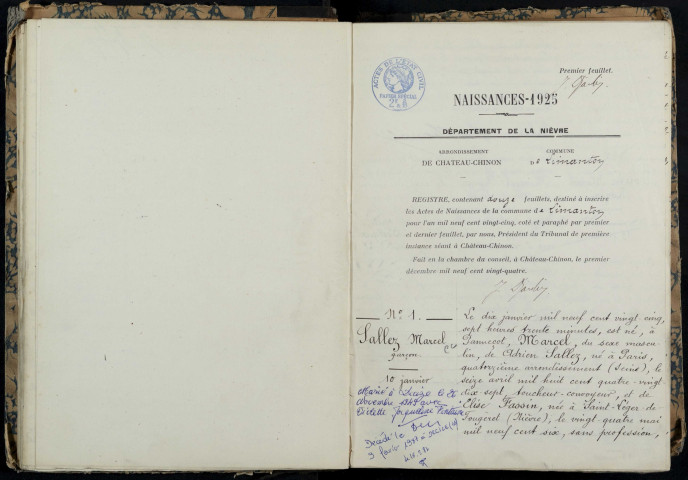 Premier feuillet.
ACTES DE L'ETAT CIVIL
PAPIER SPÉCIAL
NAISSANCES-1925
DÉPARTEMENT DE LA NIÈVRE
ARRONDISSEMENT
DE CHATEAU-CHINON
COMMUNE
de Limanton
REGISTRE, contenant douze feuillets, destiné à inscrire
les Actes de Naissances de la commune de Limanton
pour l'an mil neuf cent vingt-cinq, coté et paraphé par premier
et dernier feuillet, par nous, Président du Tribunal de première
instance séant à Château-Chinon.
Fait en la chambre du conseil, à Château-Chinon, le premier
décembre mil neuf cent vingt-quatre.
N° 1.
Sallez Marcel
garçon
10 janvier
Marié à
novembre
Décédé le
Le dix janvier mil neuf cent vingt cinq,
sept heures trente minutes, est né, à
Pannecot, Marcel, du sexe mascu-
lin, de Adrien Sallez, né à Paris,
quatorzième arrondissement (Seine), le
seize avril mil huit cent quatre-vingt
dix-sept, toucheur-convoyeur, et de
Elise Fassin, née à Saint-Léger-de-
Fougeret (Nièvre), le vingt-quatre mai
mil neuf cent six, sans profession,